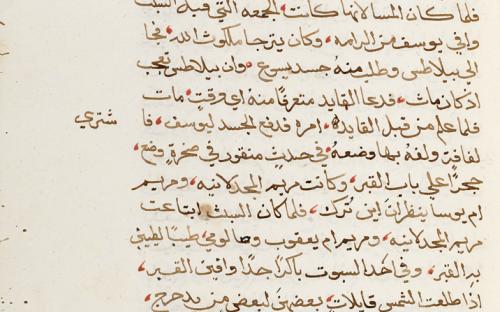 فلما كان المسا لانها كانت الجمعه التي قبل السبت
وافي يوسف من الرامه، وكان يترجا ملكوث الله، فجا
الي بيلاطس وطلب منه جسد يسوع، وان بيلاطس تعجب
اذ كان مات، فدعا القايد متعرفًا منه اي وقتٍ مات
فلما علم من قبل القايد، امره فدفع الجسد ليوسف، فا
شتري
لفافتٍ ولفه بها وضعه في حدثٍ منقور في صخرةٍ وضع،
حجرًا علي باب القبر، وكانت مريم المجدلانيه، ومريم
ام يوسا ينظران اين تُرك، فلما كان السبت ابتاعت
مريم المجدلانيه، ومريم ام يعقوب وصالومي، طيبًا لطيبن
بهِ القبر، وفي احد السبوت باكرًا جدًا وافين القبر،
اذا طلعت الشمس قايلاتٍ، بعضهن لبعض من يدحرج،